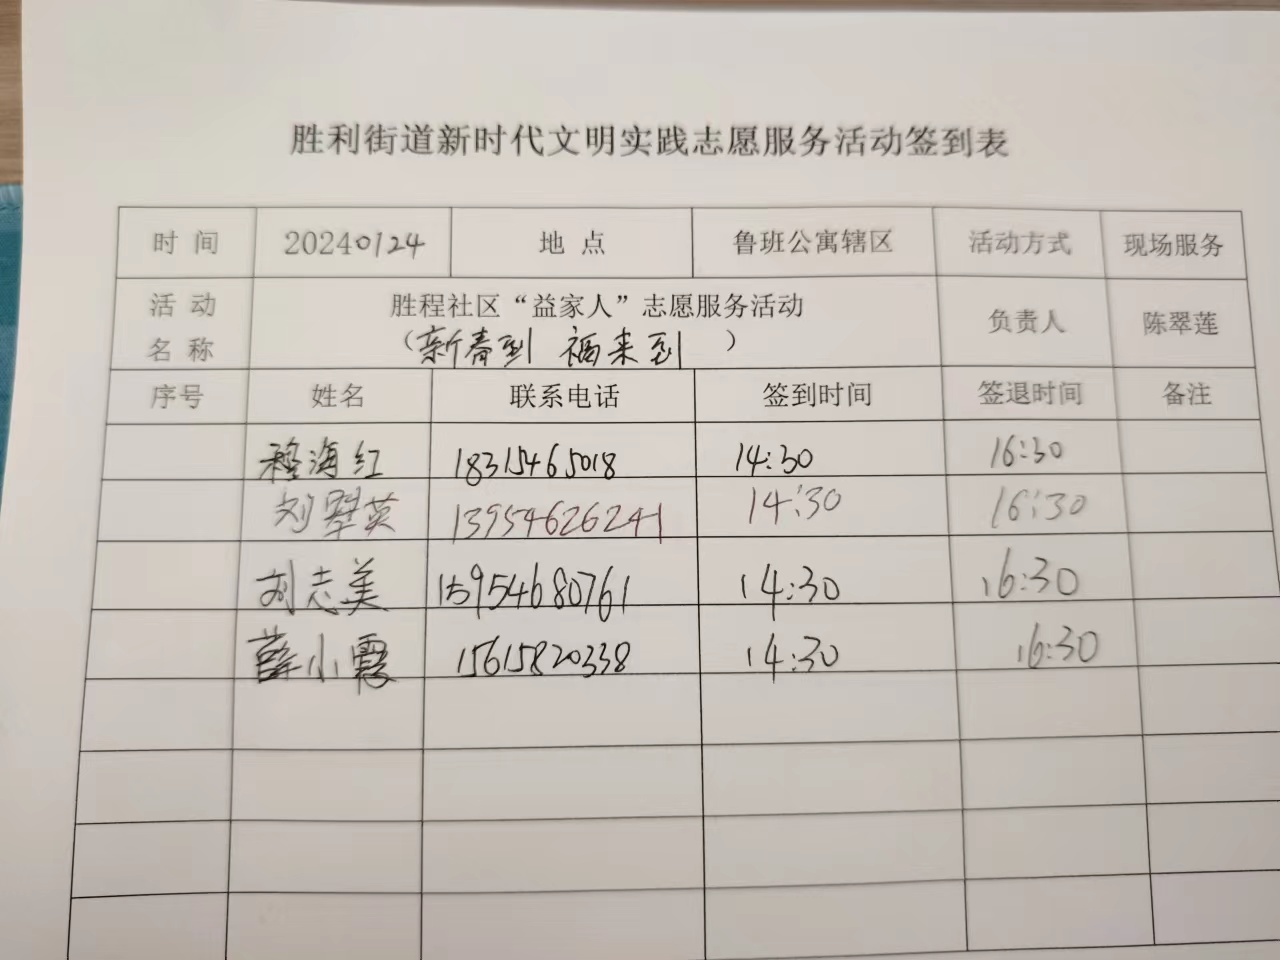 胜利街道新时代文明实践志愿服务活动签到表
时间 20240124 地点 鲁班公寓辖区 活动方式 现场服务
活动名称 胜程社区“益家人”志愿服务活动 负责人 陈翠莲
（新春到 福来到 ）
序号 姓名 联系电话 签到时间 签退时间 备注
穆海红 18315465018 14:30 16:30
刘翠英 13954626241 14:30 16:30
刘志美 15954680761 14:30 16:30
薛小霞 15615820338 14:30 16:30